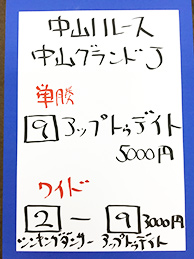 中山11レース
中山グランドJ
単勝
9 アップトゥデイト
5000円
ワイド
2 ー 9 3000円
シンキングダンサー アップトゥデイト